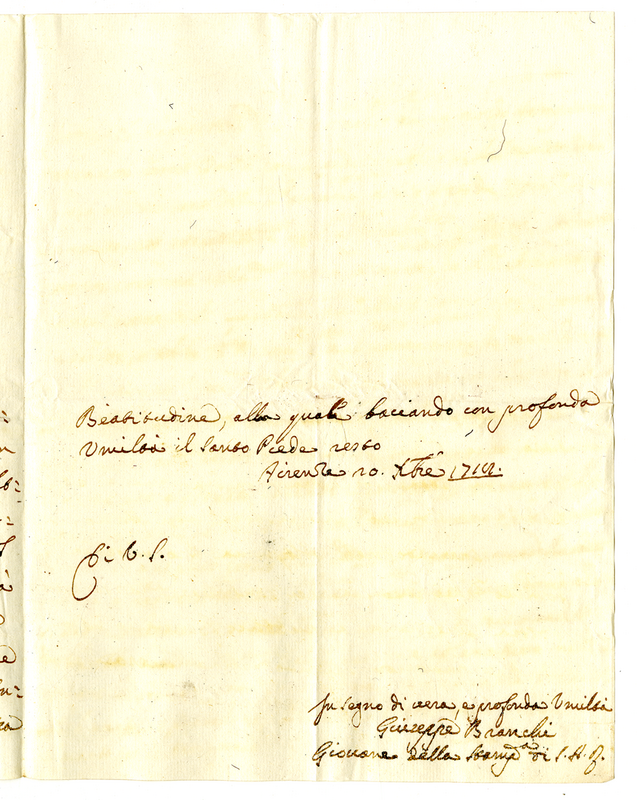 Beatitudine, alla quale baciando con profonda
Umiltà il Santo Piede resto
Firenze 20. Xbre
Di V. S.
In segno di vera, e profonda Umiltà
Giuseppe Bianchi
Giovane della Stamp.a di S. A. R.